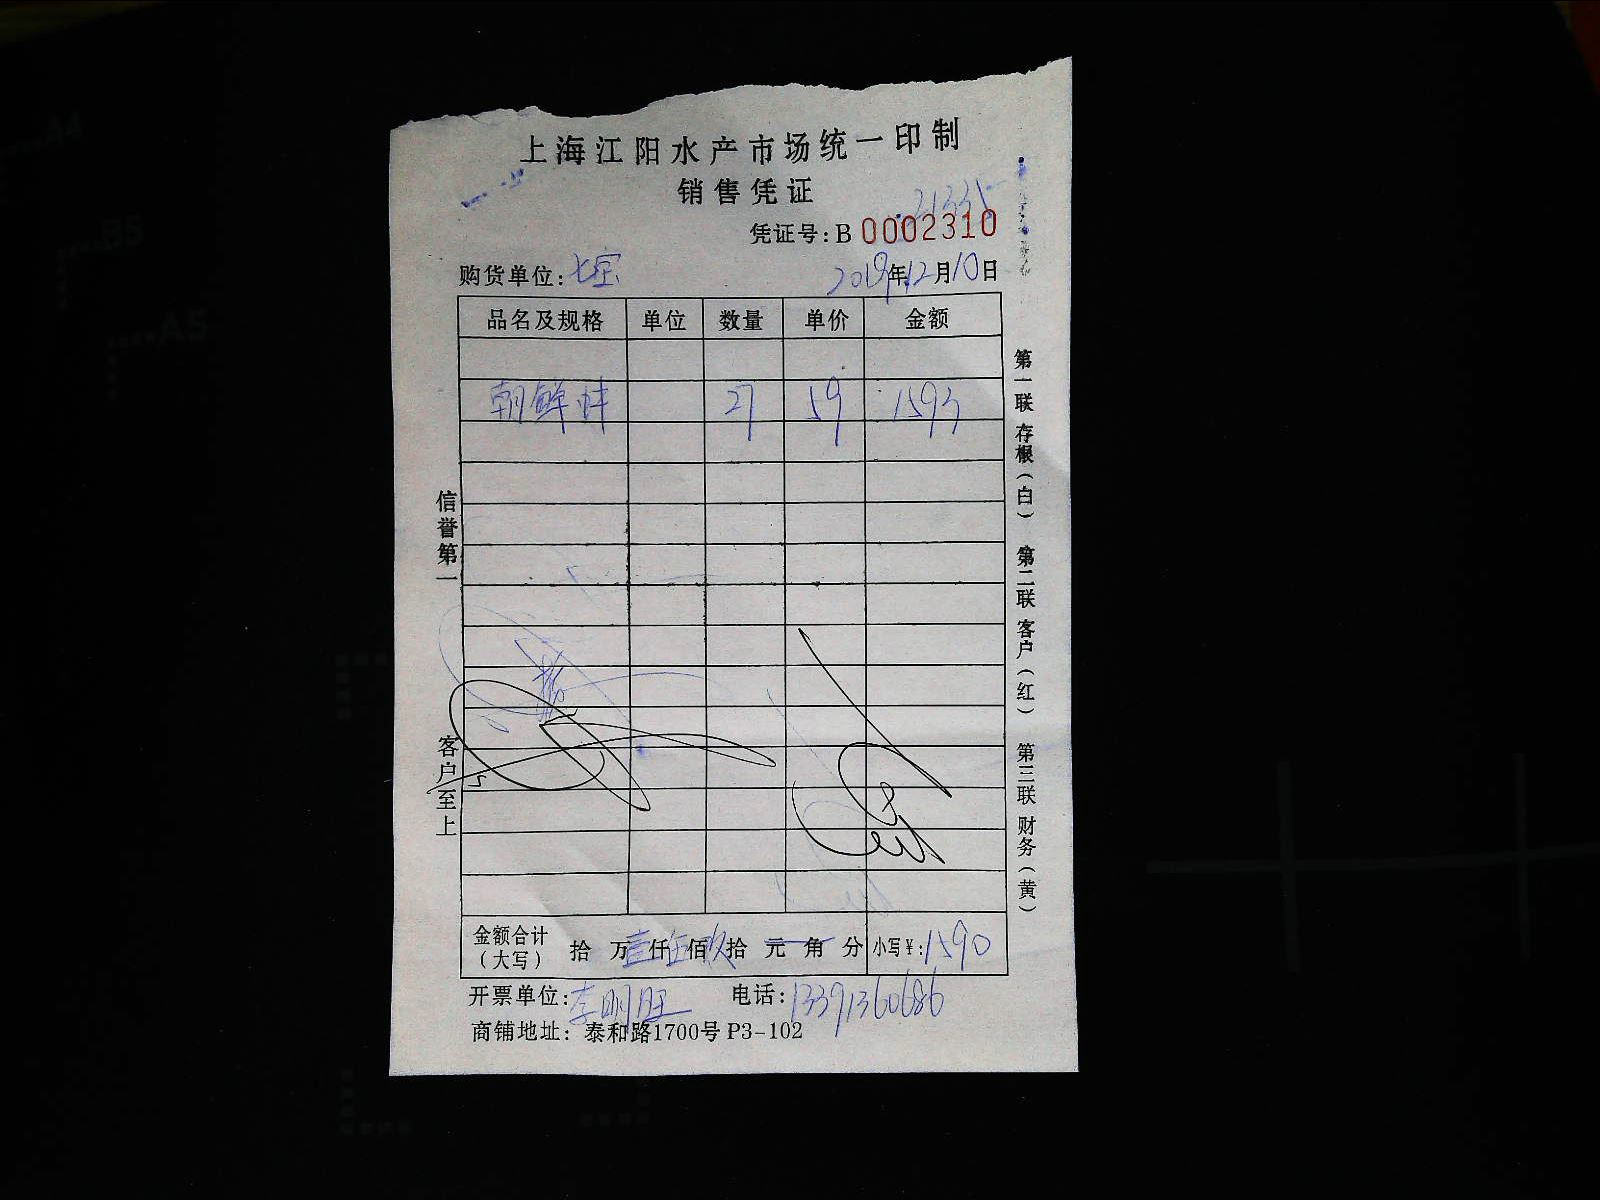 上海江阳水产市场统一印制
销售凭证
21335
凭证号:B 0002310
购货单位:七宝 2019年12月10日
品名及规格 单位 数量 单价 金额
朝鲜蚌 27 59 1593
信誉第一
客户至上
第一联 存根(白) 第二联 客户(红) 第三联 财务(黄)
金额合计(大写) 拾 万壹仟伍佰玖拾 元 角 分 小写¥:1590
开票单位:李明旺 电话:13391360686
商铺地址: 泰和路1700号 P3-102
A4
B5
A5